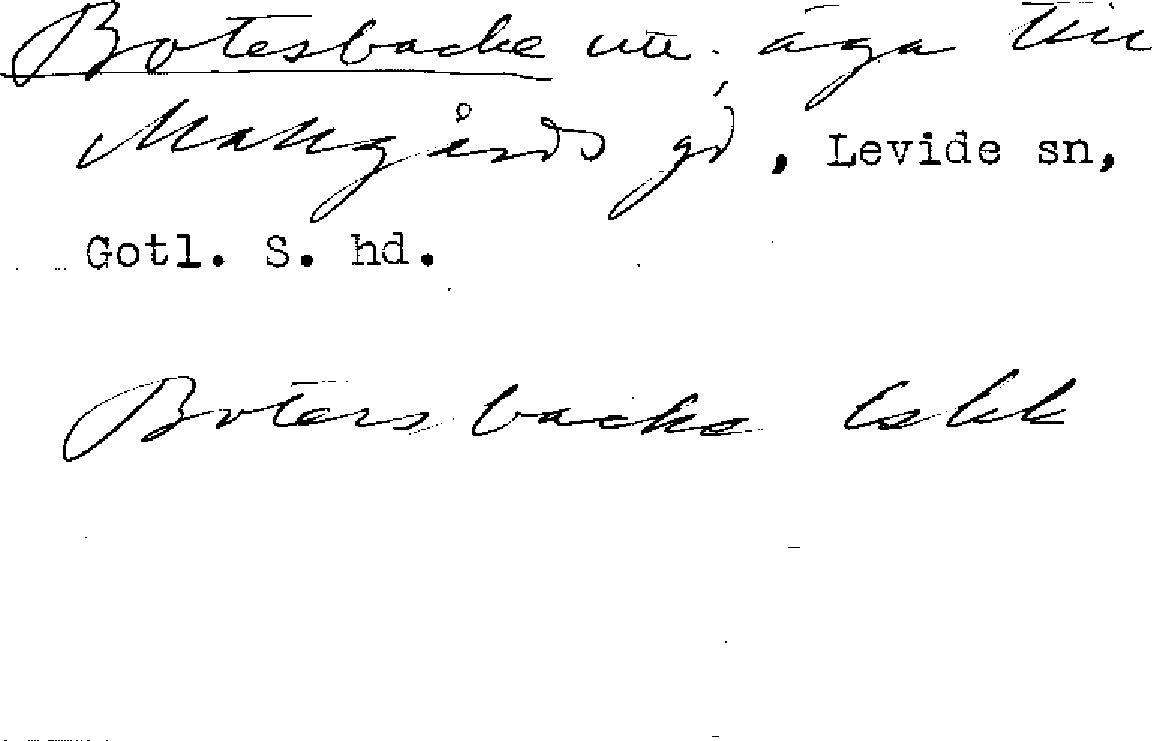 Botesbacke äga till
Mallgårds gd, Levide sn,
Gotl. S. hd.
Boters backe Lskk